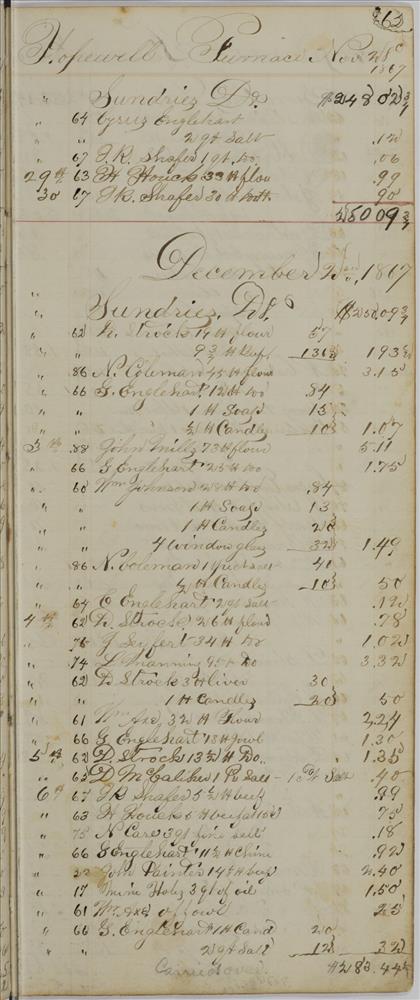 263
Hopewell Furnace Nov 28th
1867
" Sundries Dr. $248 02 3/4
" 64 Cyrus Englehart
" 2 qt Salt .12
" 67 J.K. Shafer 1 qt. Do. .06
29th 63 H Houck 33 H flou .99
30 67 J K. Shafer 30 H 90
25009 3/4
December 2nd, 1867
" Sundries, Dr. $250.09 3/4
" 62 D. Strock 14 H flour 57
" 9 3/4 H Beef 136 1/2 193 1/2
" 86 N. Coleman 45 H flour 3.15
" 66 G. Englehart 12 H Do .84
" " 1 H Soap 13
" " 1/2 H Candles 10 1.07
3rd .88 John Mills 73 H flour 5.11
" 66 G Englehart 25 H Do 1.75
" 60 Wm Johnson 28 H Do .84
" " 1 H Soap 13
" " 1 H Candles 20
" " 4 window glass 32 1.49
" 86 N. Coleman 1 40
" " 1/2 H Candles 10 50
" 64 C Englehart 2 qt Salt .12
4th 62 D. Strock 26 H flour .78
" 75 J Seyfert 34 H Do 1.02
" 74 L Manning Do 3.32
" 62 D Strock 3 H liver 30
" 1 H Candles 20 50
" 61 Wm Axe, 32 H flour 2.24
" 66 G Englehart 18 H Jowl 1.30
5th 62 D. Strock 13 1/2 H Do.. 1.35
" 65 D. McCaliker 1 Salt .40
6th 67 J K Shafer 5 1/2 H beef .99
" 63 H Houck 5 H beef 75
" 75 N Care 3 qt fine salt .18
" 66 G Englehart 11 1/2 H Chine .92
" 22 John Painter 14 H beef 2.40
" 17 Hotz 3 qt of oil 1.50
" 61 Wm Axe 25
" 66 G. Englehart 1 H Cand 20
" " 2 qt Salt 12 32
Carried over. $283.44